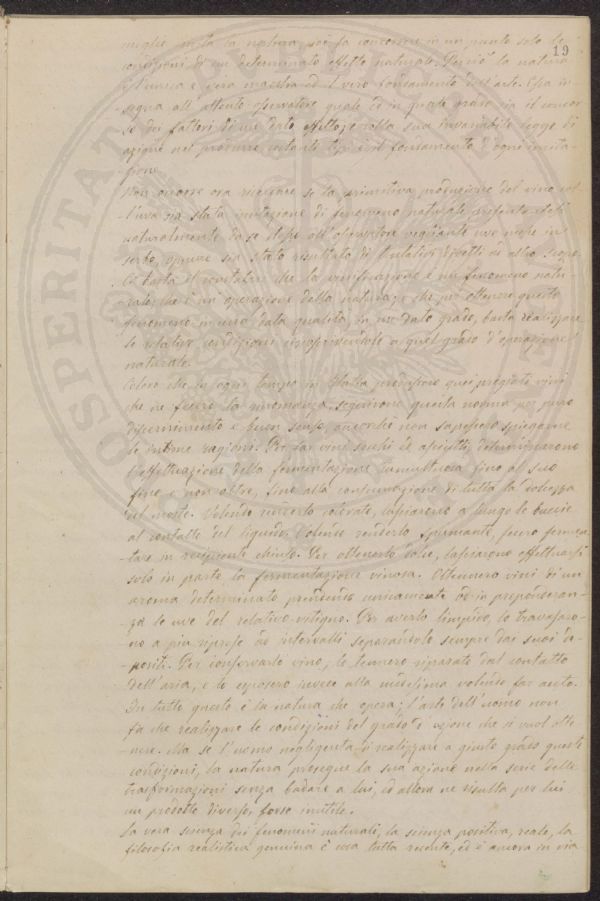 19
meglio imita la natura, coi fa concorrere in un punto solo le
condizioni di un determinato effetto naturale. Perciò la natura
è l'unica e vera maestra ed il vero fondamento dell'arte. Essa in-
segna all'attento osservatore quale ed in quale grado sia il concor-
so dei fattori di un dato effetto, e colla sua invariabile legge di
azione nel produrre costanti è il fondamento d'ogni imita-
zione.
Non occorre ora ricercare se la primitiva produzione del vino col-
l'uva sia stata imitazione di fenomeno naturale presentatosi
naturalmente da se stesso all'osservatore negligente uve messe in
serbo, oppure sia stato risultato di tentativi diretti ad altro scopo.
Ci basta il constatare che la vinificazione è un fenomeno natu-
rale, che è un'operazione della natura, e che per ottenere questo
fenomeno in una data qualità, in un dato grado, basta realizzare
le relative condizioni a quel grado d'operazione
naturale.
Coloro che in ogni tempo in Italia produssero quei pregiati vini
che ne fecero la rinomanza, seguirono questa norma per puro
discernimento e buon senso, ancorchè non sapessero spiegarne
le intime ragioni. Per far vini secchi ed asciutti, determinarono
l'effettuazione della fermentazione tumultuosa fino al suo
fine e non oltre, fino alla consumazione di tutta la dolcezza
del mosto. Volendo renderlo colorato, lasciarono a lungo le buccie
al contatto del liquido. Volendo renderlo spumante, fecero fermen-
tare in recipiente chiuso. Per ottenerlo dolce, lasciarono effettuarsi
solo in parte la fermentazione vinosa. Ottennero vini di un
aroma determinato premendo unicamente od in preponderan-
za le uve del relativo vitigno. Per averlo limpido, lo travasaro-
no a più riprese ad intervalli separandolo sempre dai suoi de-
positi. Per conservarlo vino, lo tennero riparato dal contatto
dell'aria, e lo esposero invece alla medesima volendo far aceto.
In tutto questo è la natura che opera; l'arte dell'uomo non
fa che realizzare le condizioni del grado d'azione che si vuol otte-
nere. Ma se l'uomo negligenta di realizzare a giusto grado queste
condizioni, la natura prosegue la sua azione nella serie delle
trasformazioni senza badare a lui, ed allora ne risulta per lui
un prodotto diverso, forse inutile.
La vera scienza dei fenomeni naturali, la scienza positiva, reale, la
filosofia realistica genuina è cosa tutta recente, ed è ancora in via